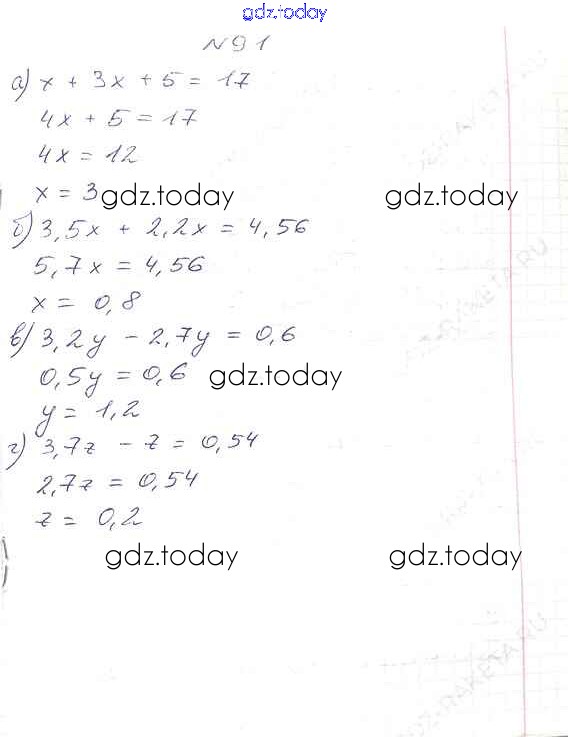 gdz.today
№91
а) x + 3x + 5 = 17
4x + 5 = 17
4x = 12
x = 3 gdz.today gdz.today
б) 3,5x + 2,2x = 4,56
5,7x = 4,56
x = 0,8
в) 3,2y - 2,7y = 0,6
0,5y = 0,6 gdz.today
y = 1,2
г) 3,7z - z = 0,54
2,7z = 0,54
z = 0,2
gdz.today gdz.today